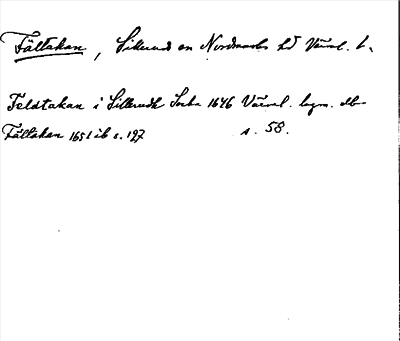 Fältakan, Sillerud sn Nordmarks hd Värml. l.
Feldtakan i Sillerudh Sochn 1646 Värml. lagm. db
s. 58.
Fälltakan 1651 ib s. 197